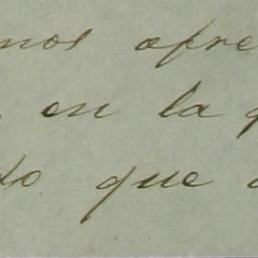 mos ofre
en la q
do que